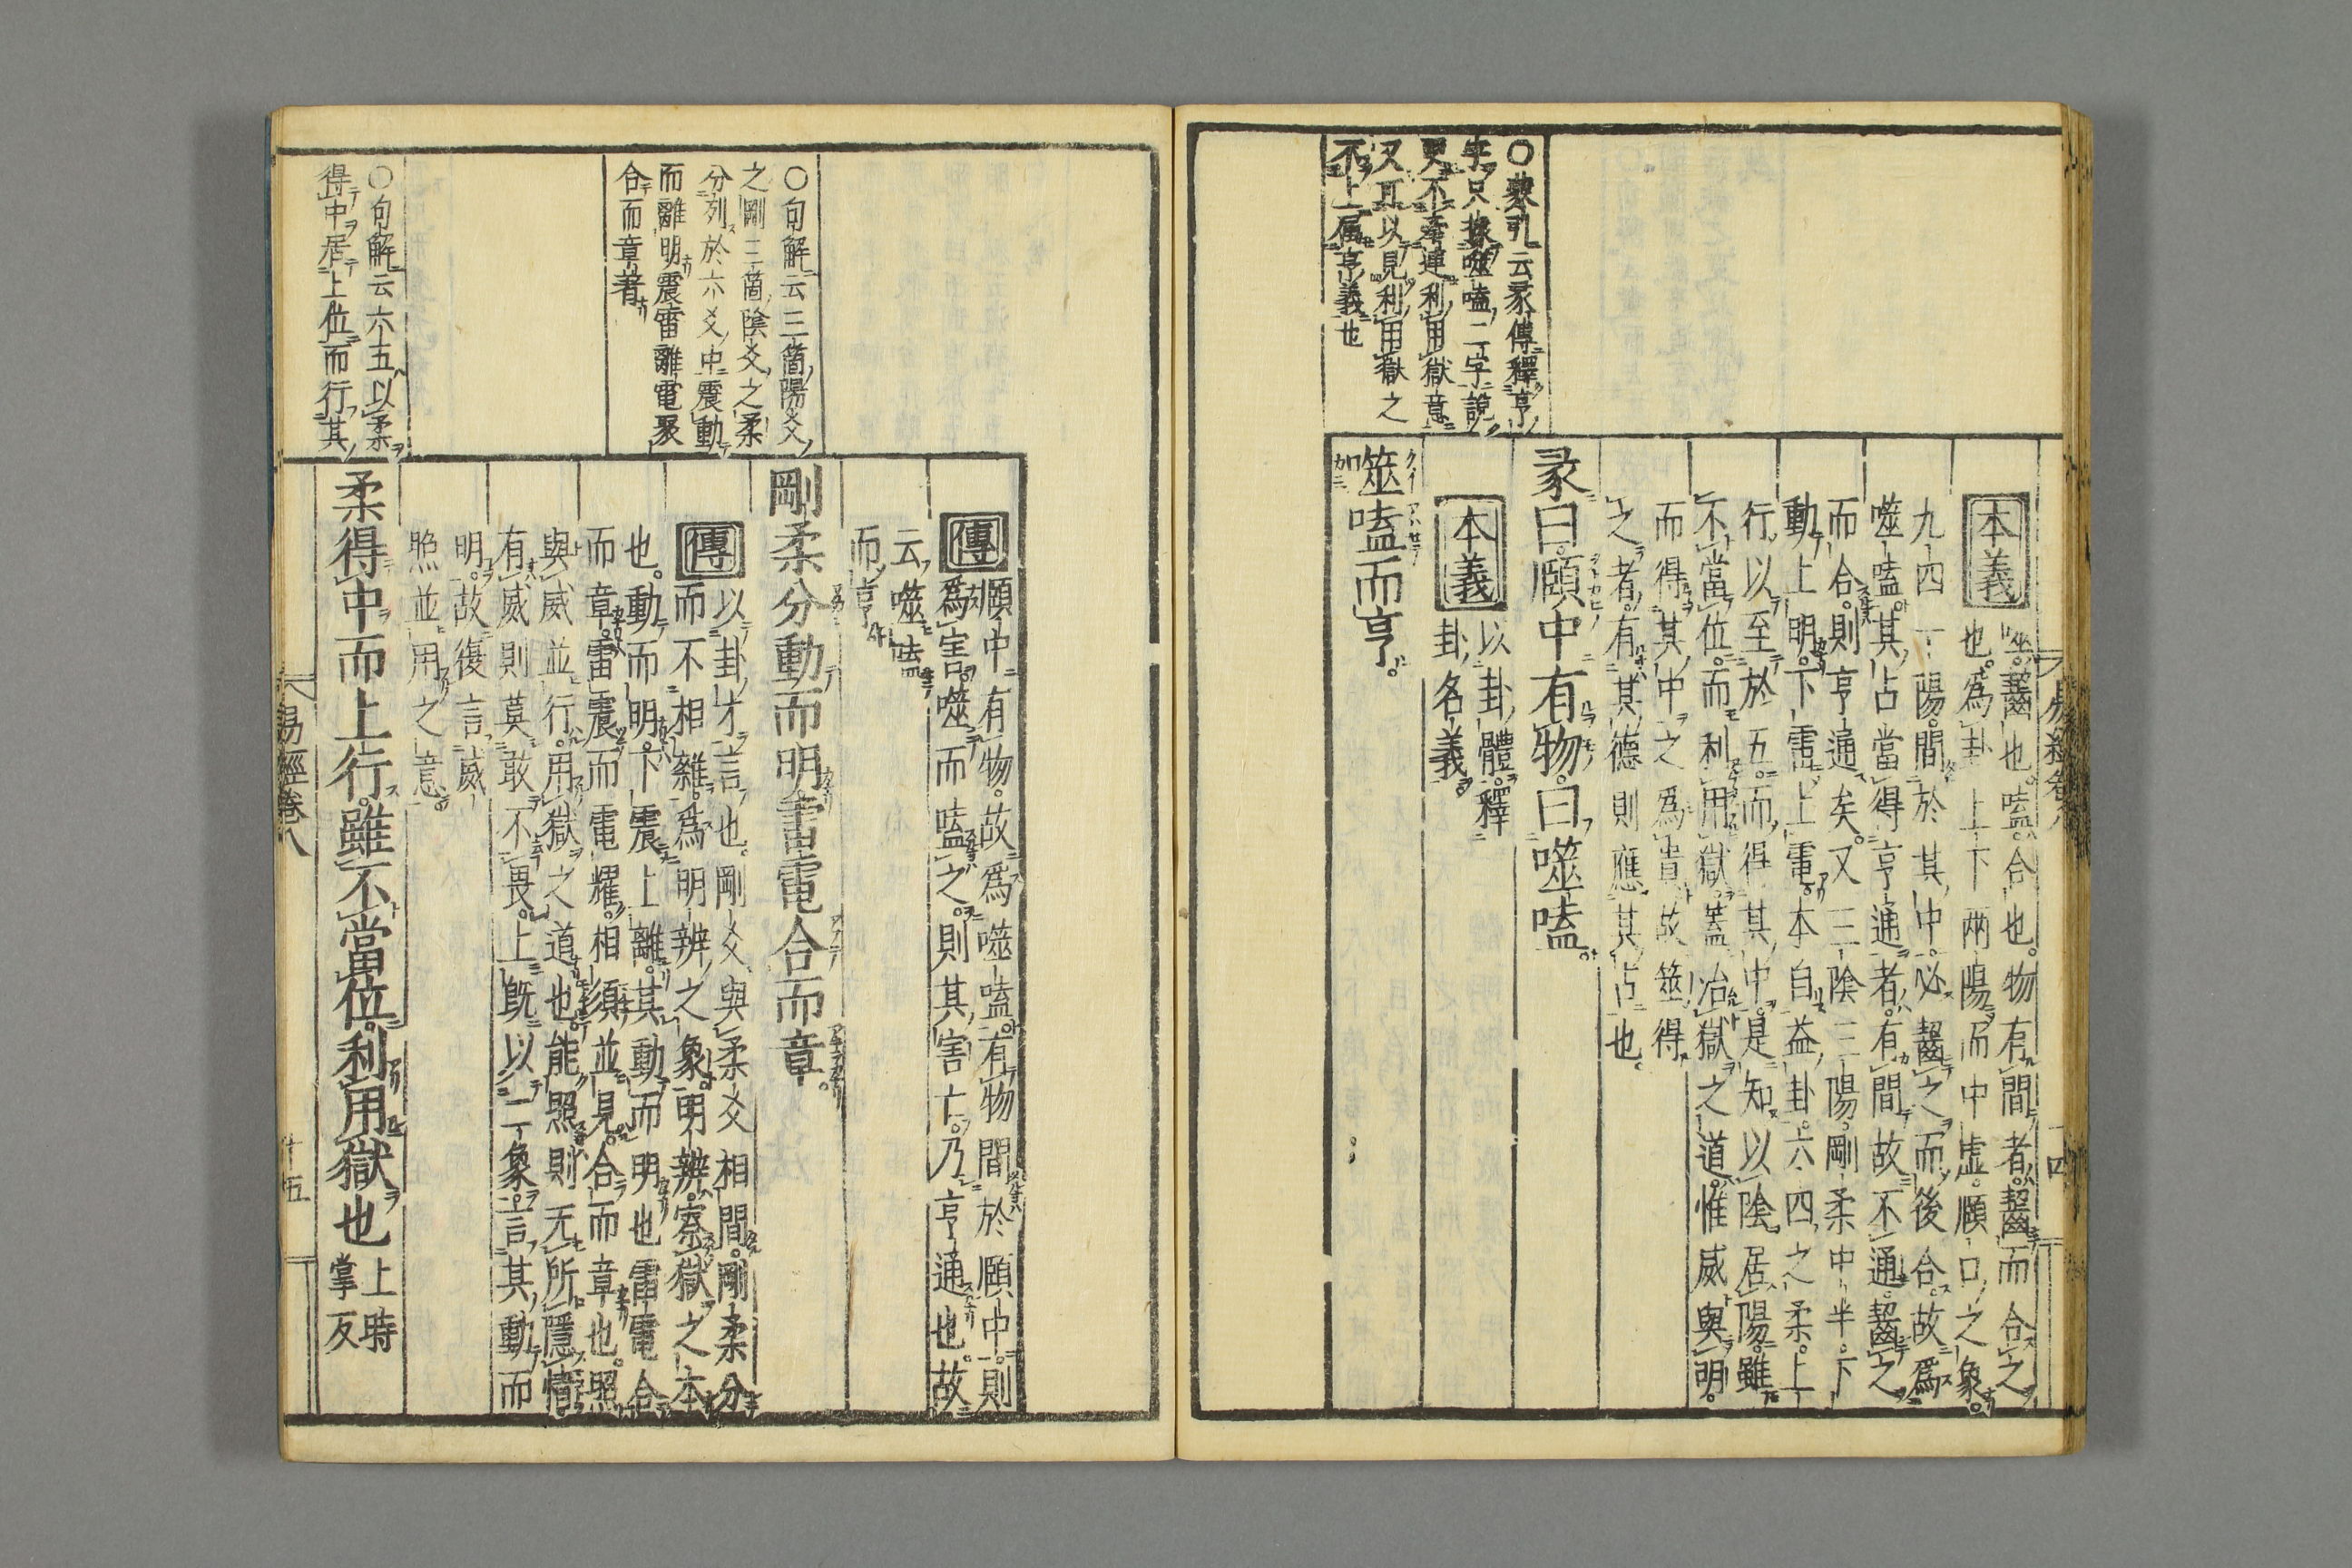 易經卷八
十四
本義
噬齧也。嗑合也。物有間者。齧而合之
也。爲卦上下兩陽而中虛。頤口之象。
九四一陽。間於其中。必齧之而後合。故爲
噬嗑。其占當得亨通者。有間故不通。齧之
而合。則亨通矣。又三陰三陽。剛柔中半。下
動上明。下雷上電。本自益卦。六四之柔。上
行以至於五。而得其中。是知以陰居陽。雖
不當位。而利用獄。蓋治獄之道。惟威與明。
而得其中之爲貴。故筮得
之者。有其德則應其占也。
彖曰。頤中有物。曰噬嗑。
本義
以卦體。釋
卦名義。
噬嗑而亨。
○蒙引云彖傳釋亨
字只據噬嗑二字說
更不牽連利用獄意
又耳以見利用獄之
不上屬亨義也
傳
頤中有物。故爲噬嗑。有物間於頤中。則
爲害。噬而嗑之。則其害亡。乃亨通也。故
云噬嗑
而亨
剛柔分動而明。雷電合而章。
傳
以卦才言也。剛爻與柔爻相間。剛柔分
而不相雜。爲明辨之象。明辨。察獄之本
也。動而明。下震上離。其動而明也雷電合
而章。雷震而電耀。相須並見。合而章也。照
與威並行。用獄之道也。能照則无所隱情。
有威則莫敢不畏。上既以二象言其動而
明。故復言威
照並用之意。
柔得中而上行。雖不當位。利用獄也
上時
掌反
○句解云三箇陽爻
之剛三箇陰爻之柔
分列於六爻中震動
而離明震雷離電聚
合而章著
○句解云六五以柔
得中居上位而行其
易經卷八
十五